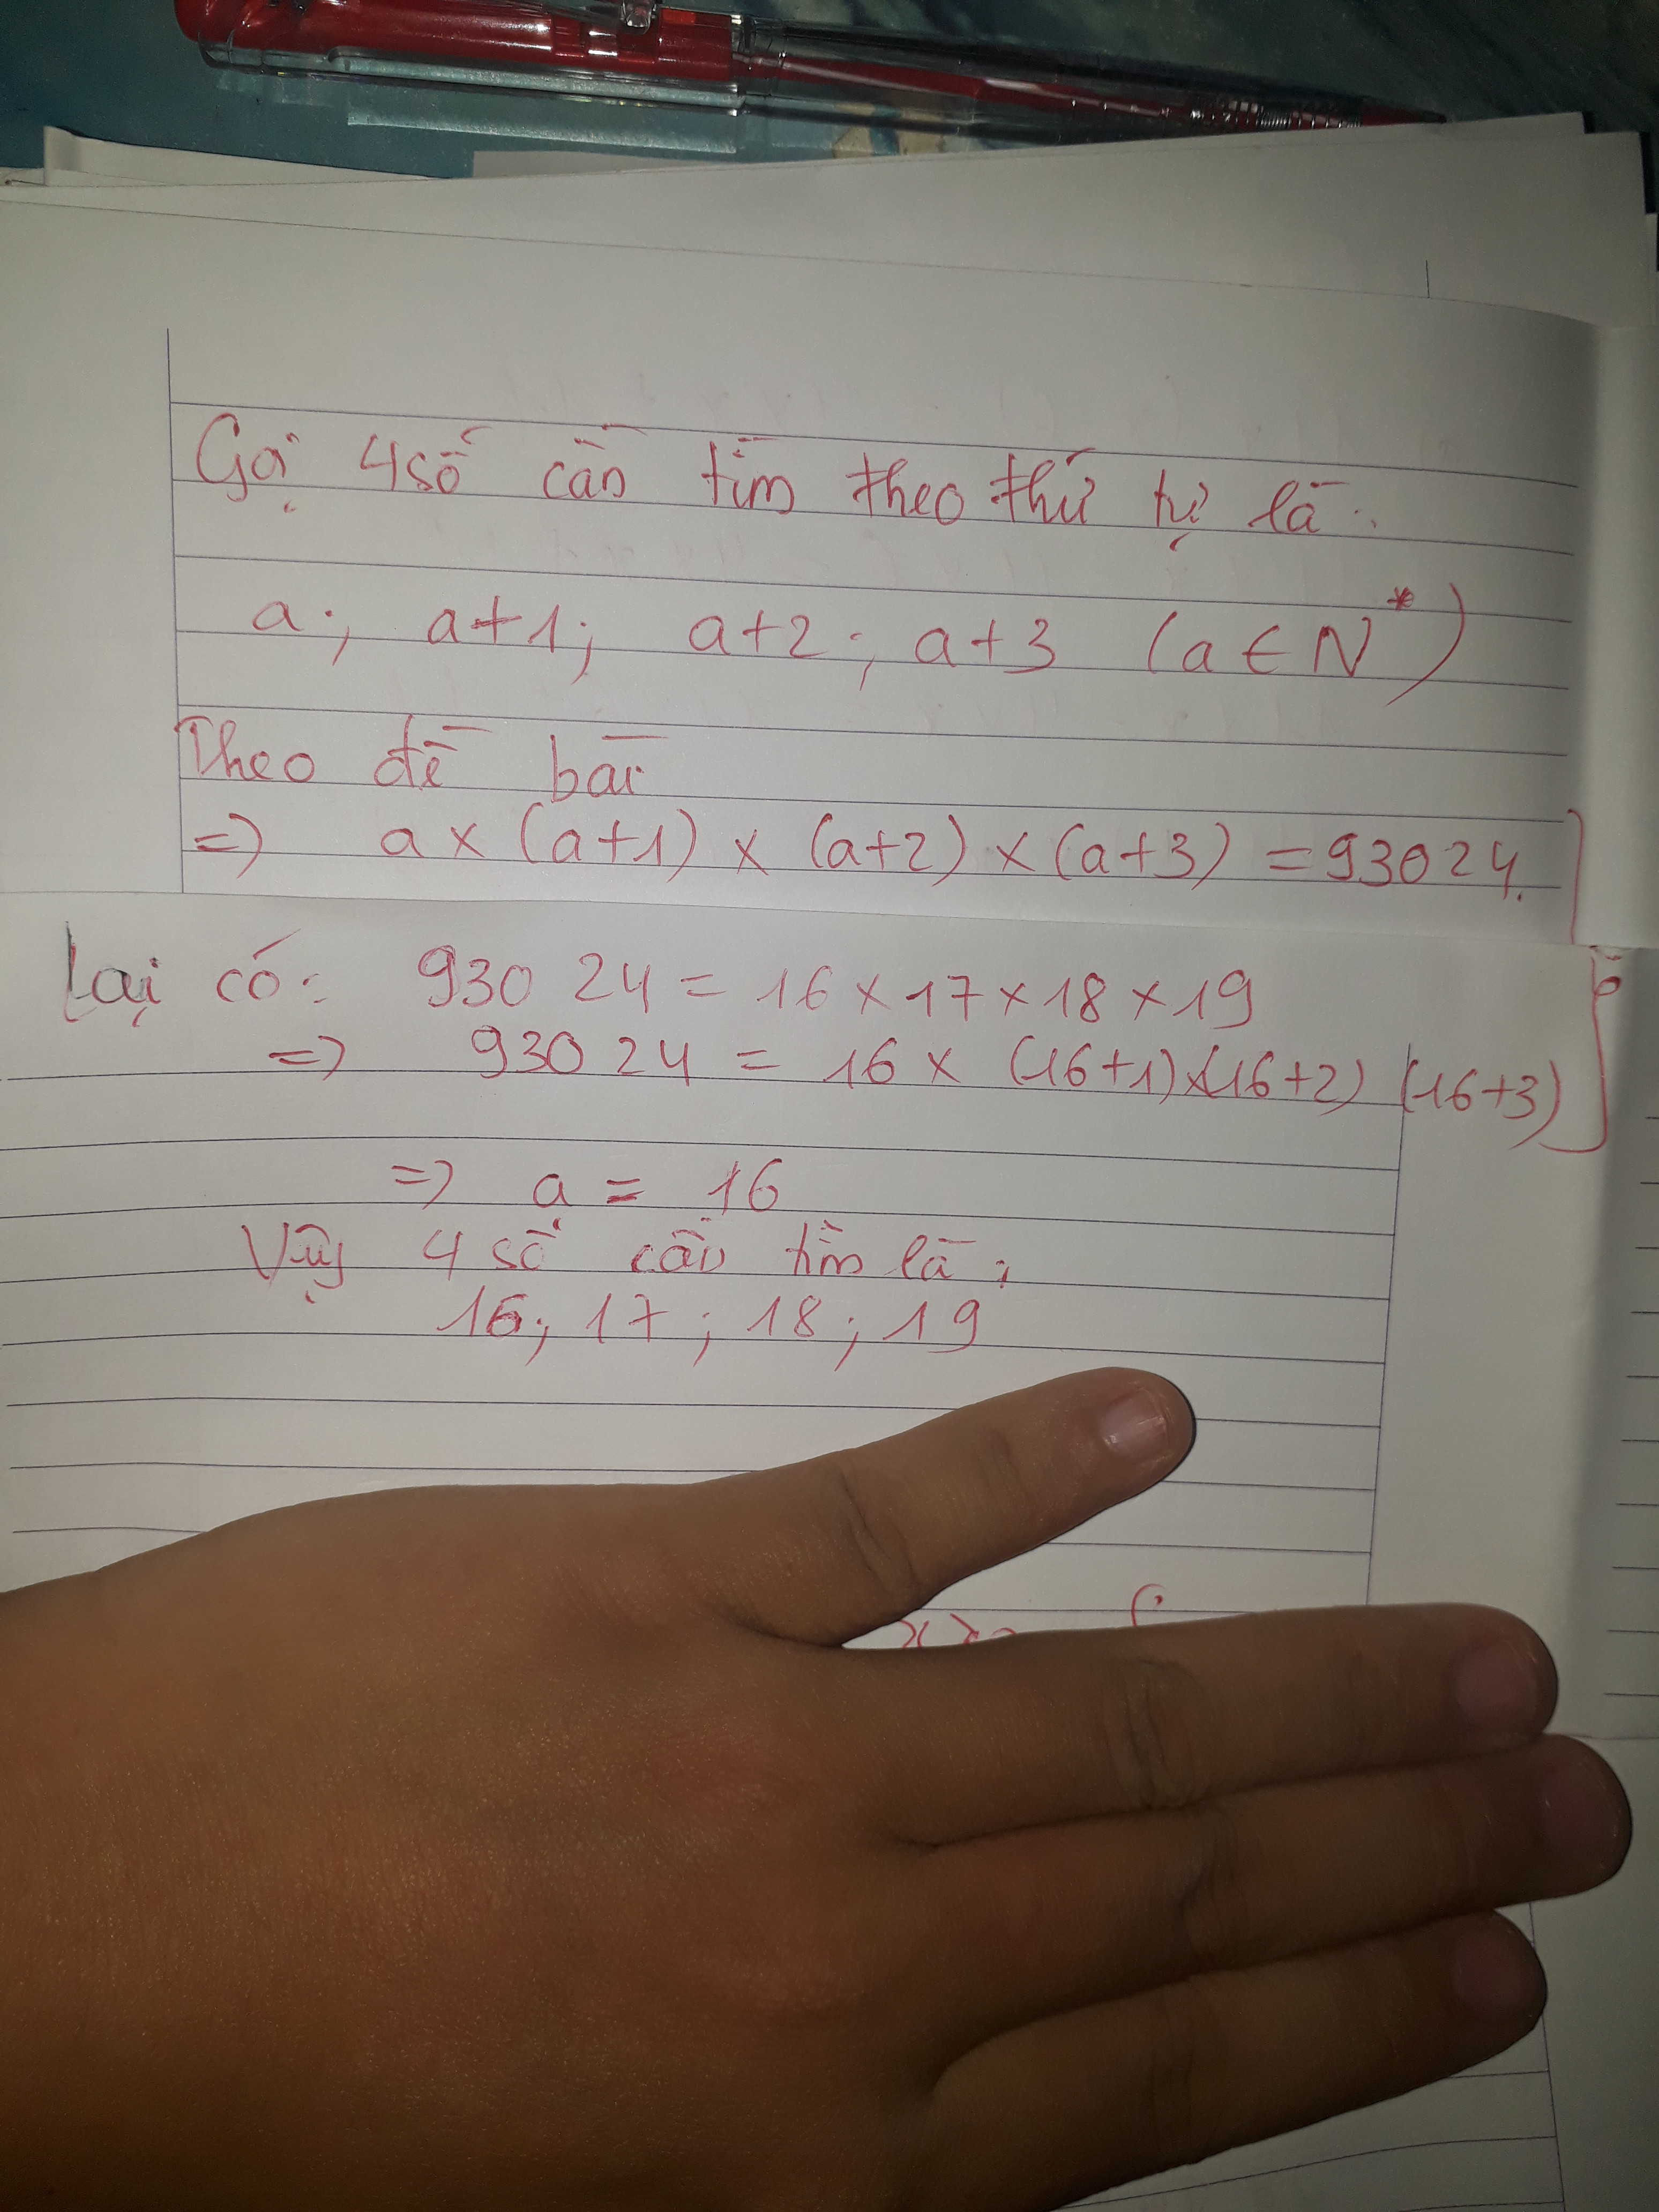 Gọi 4 số cần tìm theo thứ tự là:
a; a+1; a+2; a+3 (a ∈ N*)
Theo đề bài
=> a x (a+1) x (a+2) x (a+3) = 93024.
Lại có: 93024 = 16 x 17 x 18 x 19
=> 93024 = 16 x (16+1) x (16+2) (16+3)
=> a = 16
Vậy 4 số cần tìm là:
16; 17; 18; 19